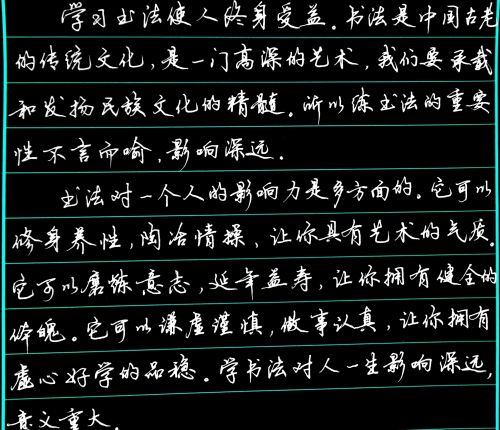 学习书法使人终身受益。书法是中国古老
的传统文化，是一门高深的艺术，我们要承载
和发扬民族文化的精髓。所以练书法的重要
性不言而喻，影响深远。
书法对一个人的影响力是多方面的。它可以
修身养性，陶冶情操、让你具有艺术的气质。
它可以磨炼意志，延年益寿，让你拥有健全的
体魄。它可以谦虚谨慎，做事认真，让你拥有
虚心好学的品德。学书法对人一生影响深远，
意义重大。